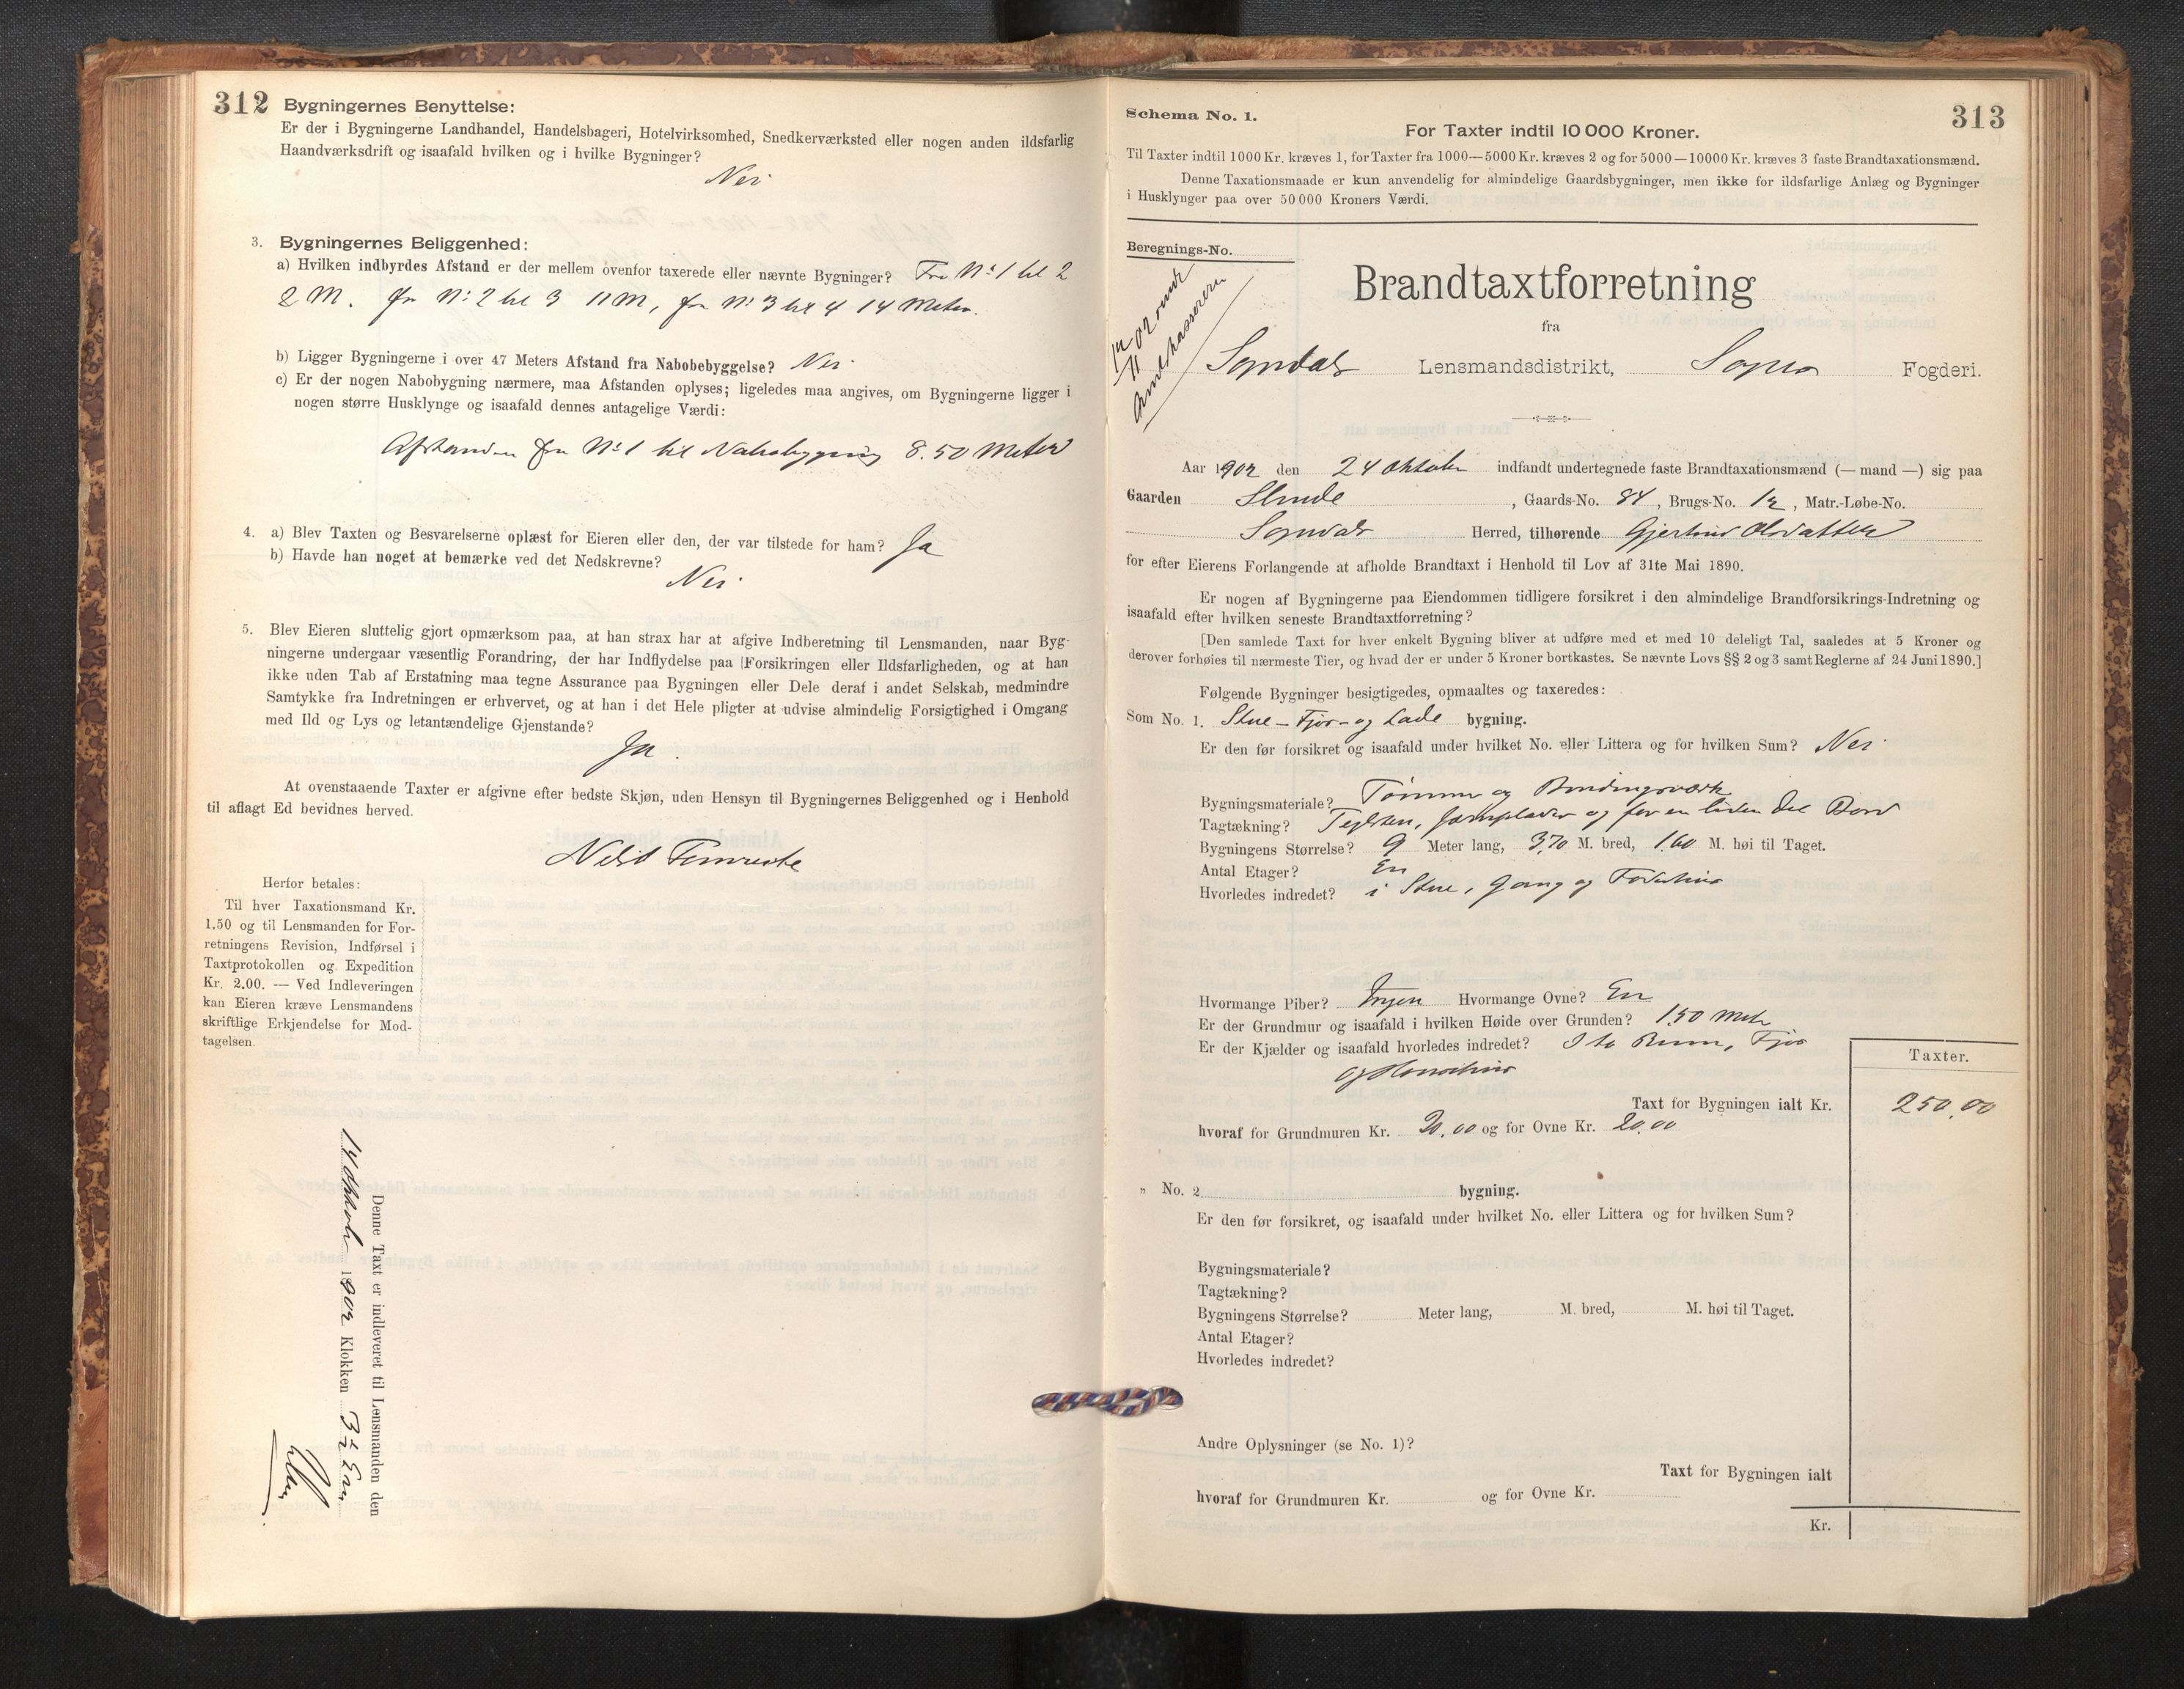 312
Bygningernes Benyttelse:
Er der i Bygningerne Landhandel, Handelsbageri, Hotelvirksomhed, Snedkerværksted eller nogen anden ildsfarlig
Haandværksdrift og isaafald hvilken og i hvilke Bygninger?
Nei
3. Bygningernes Beliggenhed:
a) Hvilken indbyrdes Afstand er der mellem ovenfor taxerede eller nævnte Bygninger? Fra No 1 til 2
2 M. fra No 2 til 3 11 M, fra No 3 til 4 14 Meter.
b) Ligger Bygningerne i over 47 Meters Afstand fra Nabobebyggelse? Nei
c) Er der nogen Nabobygning nærmere, maa Afstanden oplyses; ligeledes maa angives, om Bygningerne ligger i
nogen større Husklynge og isaafald dennes antagelige Værdi:
Afstanden fra No 1 til Nabobygning 8.50 Meter
4. a) Blev Taxten og Besvarelserne oplæst for Eieren eller den, der var tilstede for ham? Ja
b) Havde han noget at bemærke ved det Nedskrevne?
Nei
5. Blev Eieren sluttelig gjort opmærksom paa, at han strax har at afgive Indberetning til Lensmanden, naar Byg-
ningerne undergaar væsentlig Forandring, der har Indflydelse paa Forsikringen eller Ildsfarligheden, og at han
ikke uden Tab af Erstatning maa tegne Assurance paa Bygningen eller Dele deraf i andet Selskab, medmindre
Samtykke fra Indretningen er erhvervet, og at han i det Hele pligter at udvise almindelig Forsigtighed i Omgang
med Ild og Lys og letantændelige Gjenstande?
Ja.
At ovenstaaende Taxter er afgivne efter bedste Skjøn, uden Hensyn til Bygningernes Beliggenhed og i Henhold
til aflagt Ed bevidnes herved.
Herfor betales:
Til hver Taxationsmand Kr.
1.50 og til Lensmanden for For-
retningens Revision, Indførsel i
Taxtprotokollen og Expedition
Kr. 2.00. — Ved Indleveringen
kan Eieren kræve Lensmandens
skriftlige Erkjendelse for Mod-
tagelsen.
Denne Taxt er indleveret til Lensmanden den
14 Oktober 1902 Klokken 3½ Em
313
Schema No. 1.
For Taxter indtil 10 000 Kroner.
Til Taxter indtil 1000 Kr. kræves 1, for Taxter fra 1000—5000 Kr. kræves 2 og for 5000—10000 Kr. kræves 3 faste Brandtaxationsmænd.
Denne Taxationsmaade er kun anvendelig for almindelige Gaardsbygninger, men ikke for ildsfarlige Anlæg og Bygninger
i Husklynger paa over 50 000 Kroners Værdi.
Beregnings-No.
Brandtaxtforretning
fra
Sogndal Lensmandsdistrikt, Sogns Fogderi.
Aar 1902 den 24 Oktober indfandt undertegnede faste Brandtaxationsmænd (— mand —) sig paa
Gaarden Slinde, Gaards-No. 84, Brugs-No. 12, Matr.-Løbe-No.
Sogndals Herred, tilhørende Gjertrud Olsdatter
for efter Eierens Forlangende at afholde Brandtaxt i Henhold til Lov af 31te Mai 1890.
Er nogen af Bygningerne paa Eiendommen tidligere forsikret i den almindelige Brandforsikrings-Indretning og
isaafald efter hvilken seneste Brandtaxtforretning?
[Den samlede Taxt for hver enkelt Bygning bliver at udføre med et med 10 deleligt Tal, saaledes at 5 Kroner og
derover forhøies til nærmeste Tier, og hvad der er under 5 Kroner bortkastes. Se nævnte Lovs §§ 2 og 3 samt Reglerne af 24 Juni 1890.]
Følgende Bygninger besigtigedes, opmaaltes og taxeredes:
Som No. 1. Stue- Fjøs- og Lade bygning.
Er den før forsikret og isaafald under hvilket No. eller Littera og for hvilken Sum? Nei
Bygningsmateriale? Tømmer og Bindingsværk
Tagtækning? Teglsten, Jernplader og for en liden Del Bord
Bygningens Størrelse? 9 Meter lang, 3,70 M. bred, 1.60 M. høi til Taget.
Antal Etager? En
Hvorledes indredet? i Stue, Gang og Foderhus
Hvormange Piber? Ingen Hvormange Ovne? En
Er der Grundmur og isaafald i hvilken Høide over Grunden? 1.50 Meter
Er der Kjælder og isaafald hvorledes indredet? I to Rum, Fjøs
Taxter.
Taxt for Bygningen ialt Kr. 250.00
hvoraf for Grundmuren Kr. 20.00 og for Ovne Kr. 20.00
„ No. 2 bygning.
Er den før forsikret, og isaafald under hvilket No. eller Littera og for hvilken Sum?
Bygningsmateriale?
Tagtækning?
Bygningens Størrelse? Meter lang, M. bred, M. høi til Taget.
Antal Etager?
Hvorledes indredet?
Andre Oplysninger (se No. 1)?
Taxt for Bygningen ialt
hvoraf for Grundmuren Kr. og for Ovne Kr.
Kr.